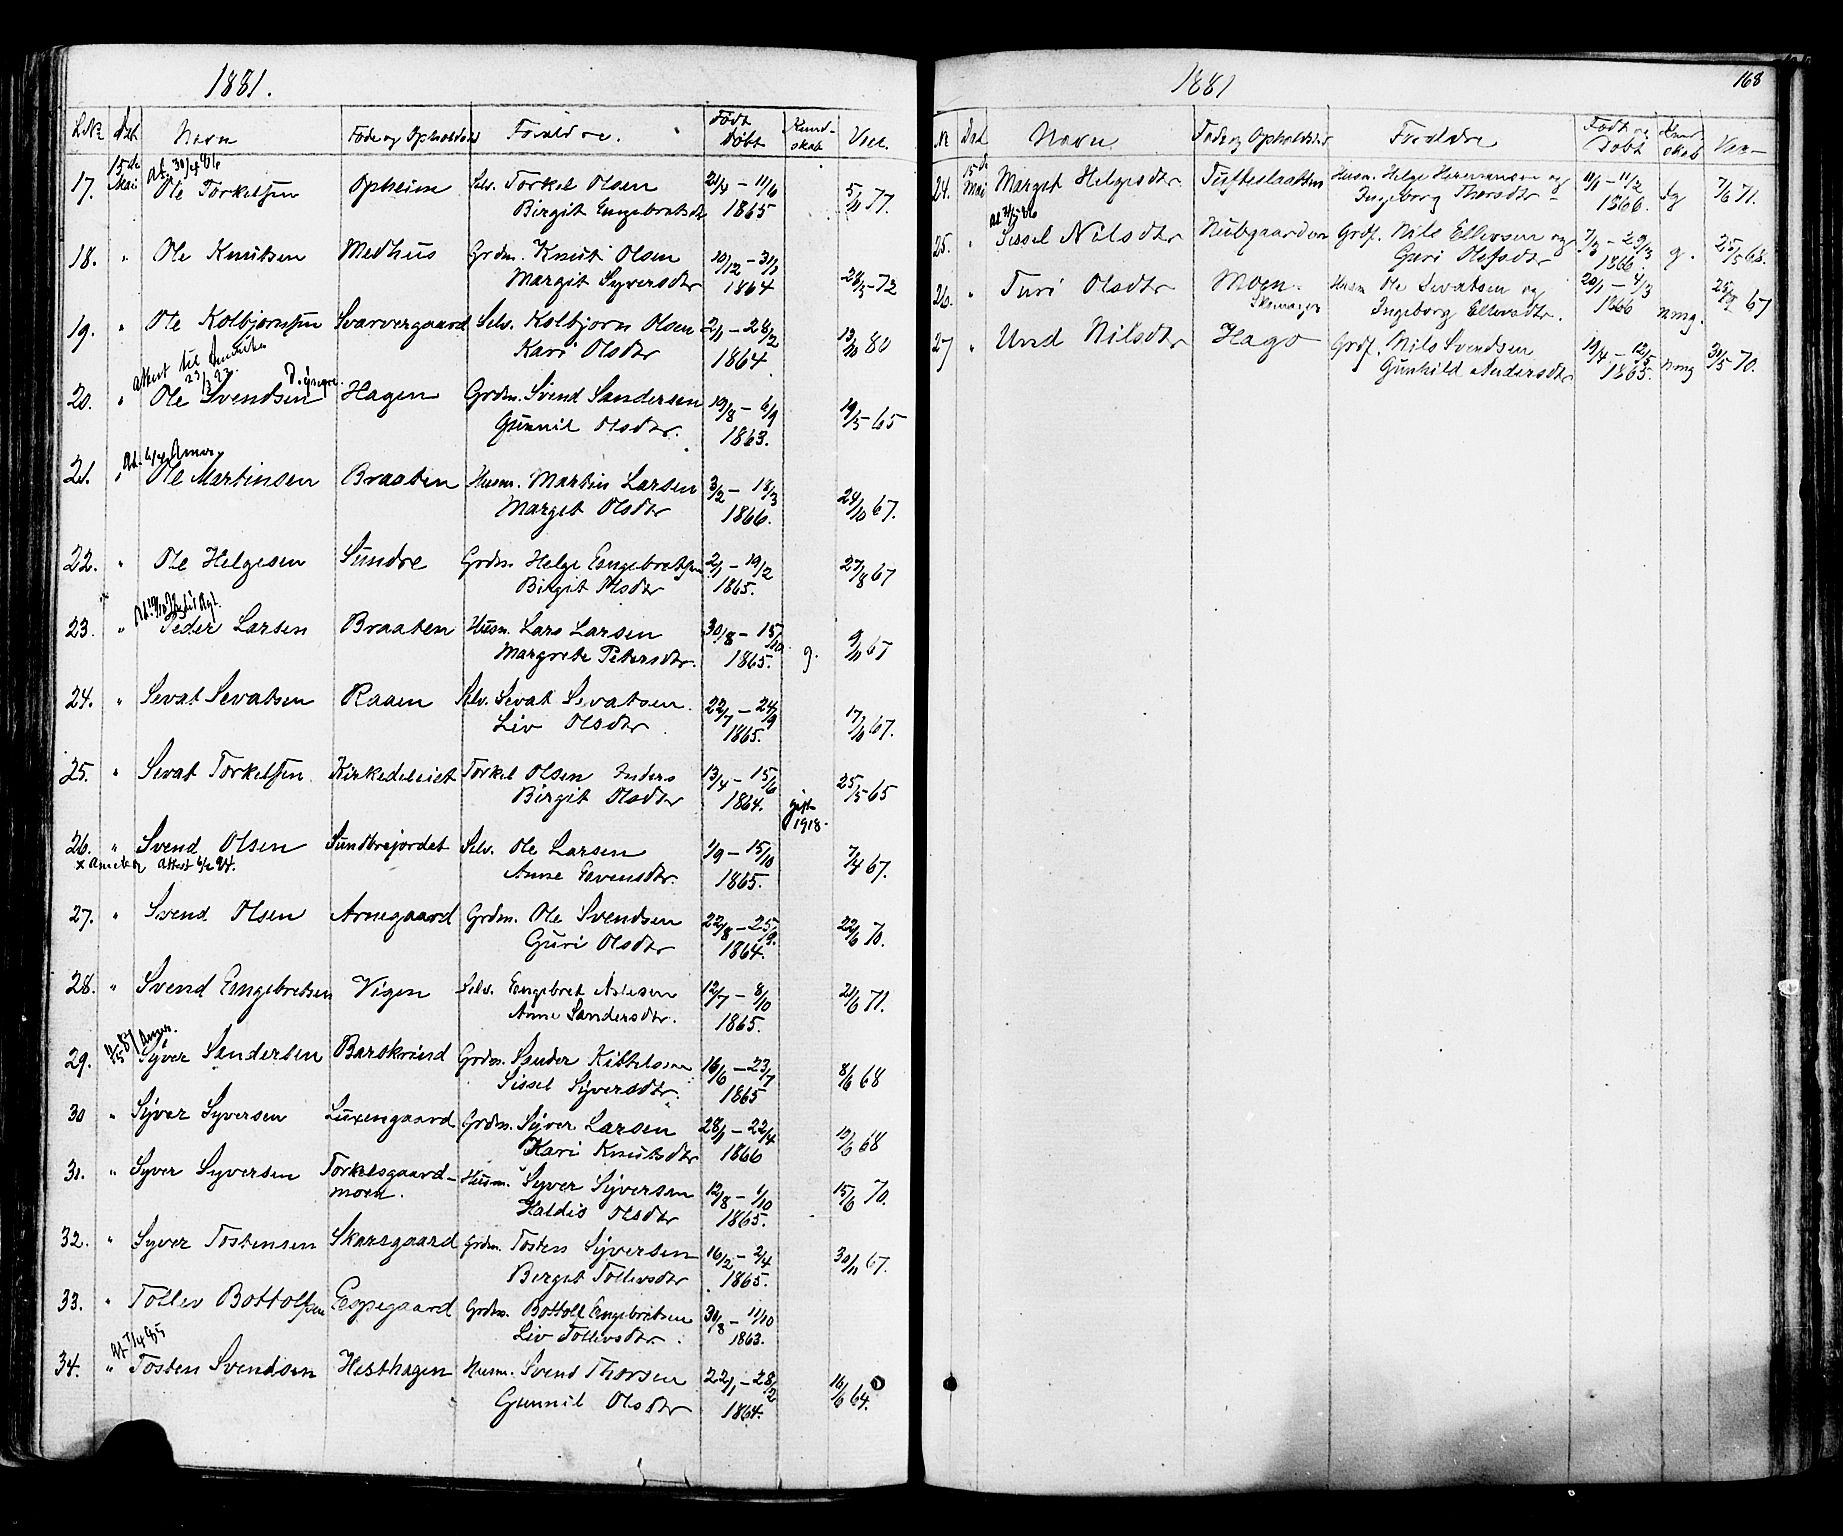 1881.
LNr Dat Navn Føde og Opholdsted Forældre. Født Døbt Kund-skab Vacc.
15de Mai At. 30/4 86
17. Ole Torkelsen Opheim Selv. Torkel Olsen 21/4 – 11/6 5/11 77.
Birgit Engebretsdtr 1865
18. " Ole Knutsen Medhus Grdm. Knut Olsen 10/12 – 31/1
Margit Syversdtr 1864 28/5 – 72
19. " Ole Kolbjørnsen Svarvergaard Selv. Kolbjørn Olsen 2/1 – 28/2 13/10 80
Kari Olsdtr 1864
attest til Amerika
23/3 93.
20. " Ole Svendsen Hagen Grdm. Svend Sandersen 19/8 – 6/9 19/5 – 65
Gunnil Olsdtr. 1863.
At. 6/4 Amer.
21. " Ole Martinsen Braaten Husm. Martin Larsen 3/2 – 18/3 24/10 67.
Margit Olsdtr 1866.
22. " Ole Helgesen Sundre Grdm. Helge Engebretsen 2/1 – 19/2 27/8 67
Birgit Olsdtr 1865.
23. " Peder Larsen Braaten Husm. Lars Larsen 30/8 – 15/10 9/11 67
Margrete Petersdtr. 1865. g.
24. " Sevat Sevatsen Raaen Selv. Sevat Sevatsen. 22/7 – 24/9 17/10 67.
Liv Olsdtr 1865.
25. " Sevat Torkelsen Kirkedeleiet Torkel Olsen Inders 13/4 – 15/6 25/5 – 65
Birgit Olsdtr 1864. gift 1918.
26. " Svend Olsen Sundrejordet Selv. Ole Larsen 1/9 – 15/10 7/4 67.
x Amerika attest 6/2 94. Anne Evensdtr. 1865.
27. " Svend Olsen Arnegaard Grdm. Ole Svendsen 22/8 – 25/9. 22/6 70.
Guri Olsdtr 1864.
28. " Svend Engebretsen Vigen Selv. Engebret Aslesen 12/7 – 8/10 21/6 71.
Anne Sandersdtr. 1865.
11/5 81 Amer.
29. Syver Sandersen Barskrind Grdm. Sander Kittelsen 16/6 – 23/7 8/6 68
Sissel Syversdtr. 1865
30 " Syver Syversen Luxengaard Grdm. Syver Larsen 28/1 – 22/4 12/6 68
Kari Knutsdtr 1866
31. " Syver Syversen Torkelsgaard- Husm. Syver Syversen 12/8 – 1/10 15/6 70.
moen. Haldis Olsdtr 1865.
32. " Syver Tostensen Skarsgaard Grdm. Tosten Syversen 16/2 – 2/4 30/11 67.
Birgit Tollevsdtr 1865.
33. " Tollev Bottolfsen Espegaard Grdm. Bottolf Engebretsen 31/8 – 11/10
Liv Tollevsdtr. 1863.
At 7/4 95
34. " Tosten Svendsen Hesthagen Husm. Svend Thorsen 22/1 – 28/2 16/6 64.
Gunnil Olsdtr 1864.
1881
168
N Dat Navn Føde og Opholdsted Forældre Født og Døbt Kundskab Vac–
15de
24. Mai Margit Helgesdtr Tufteslaatten Husm. Helge Hermansen og 11/1 – 11/2 7/6 71.
Ingeborg Thorsdtr 1866. tg
25. " Sissel Nilsdtr Nubgaarden Grdf. Nils Ellevsen og 7/3 – 29/3 25/5 68.
Guri Olsdtr 1866 g.
26. " Turi Olsdtr Moen. Husm Ole Sevatsen og 20/1 – 4/3 67
Skomager Ingeborg Ellevsdtr. 1866 nmg.
27 " Und Nilsdtr Hago Grdf. Nils Svendsen 19/4 – 12/5 31/5 70.
Gunhild Andersdtr 1865. nmg